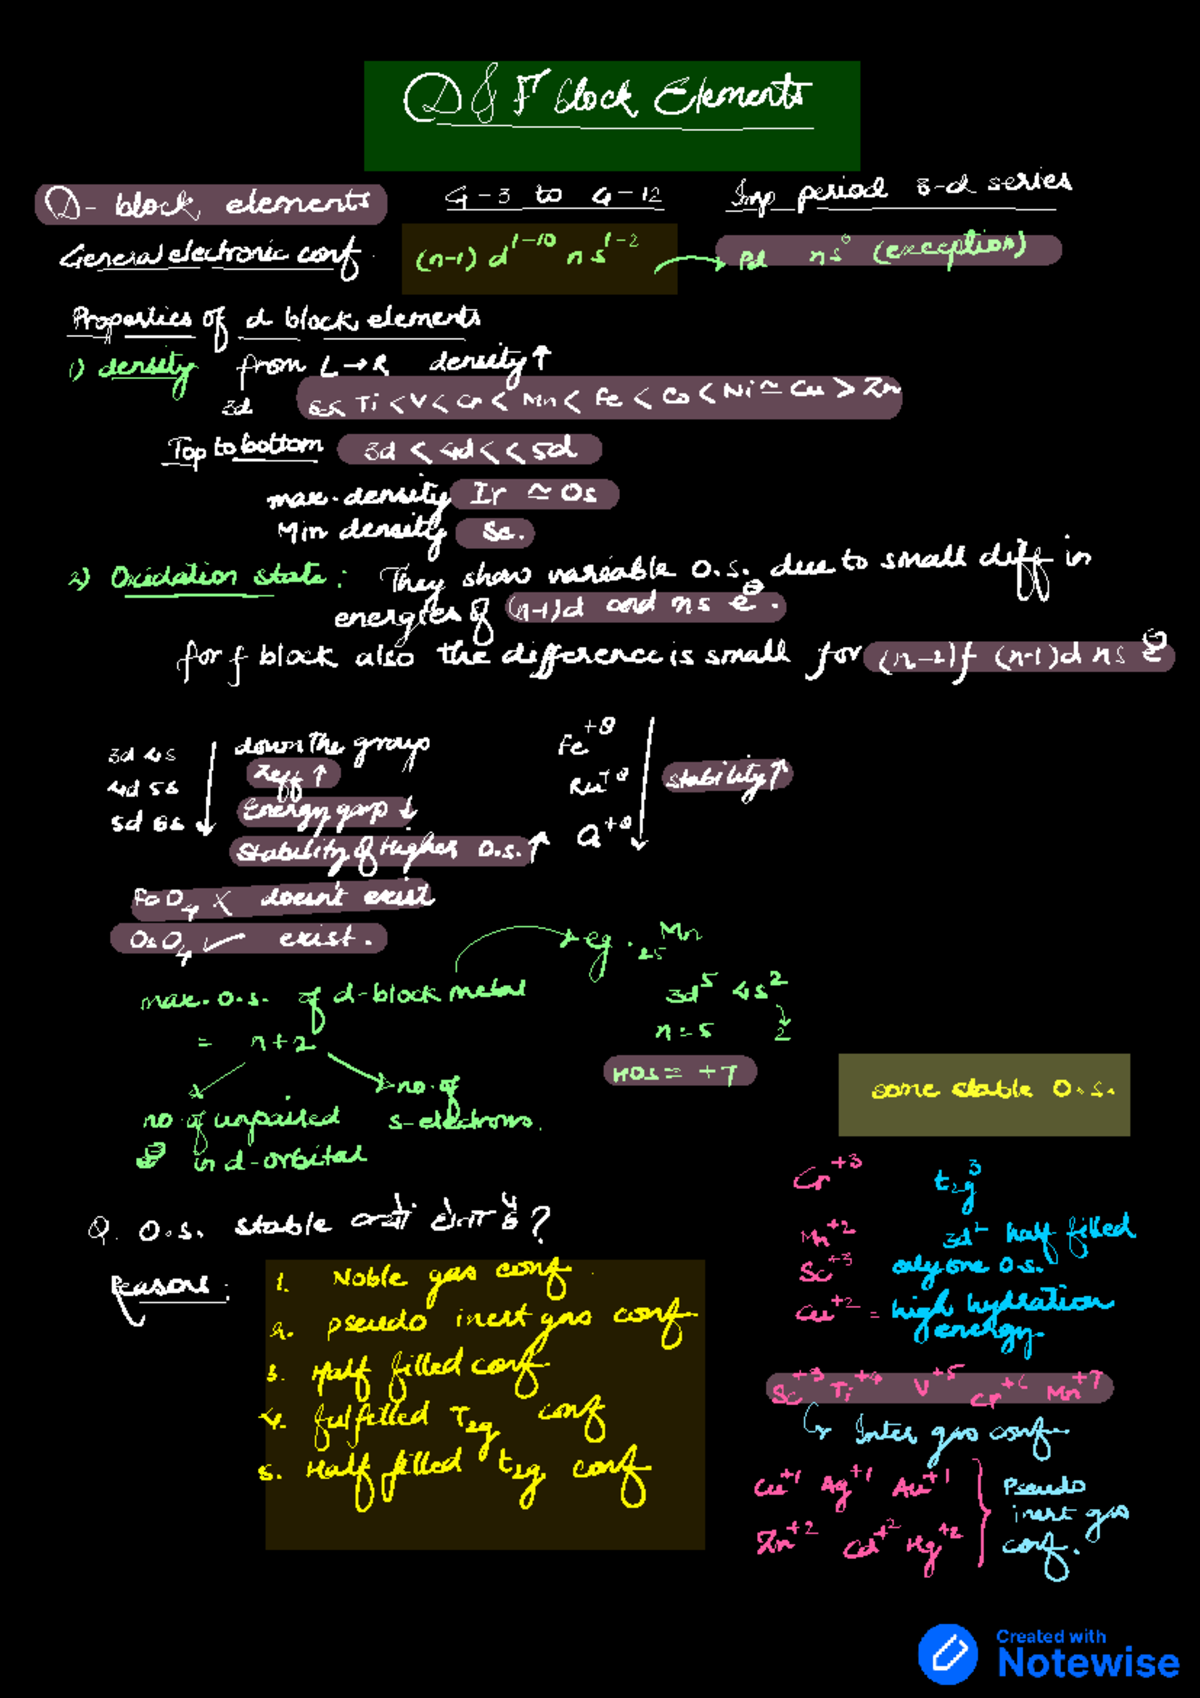 D & F block Elements
D- block elements G-3 to G-12 Imp period 3-d series
General electronic conf. (n-1) d¹⁻¹⁰ ns¹⁻² → Pd ns⁰ (exception)
Properties of d block elements
1) density from L→R density↑
3d Sc< Ti < V < Cr < Mn < Fe < Co < Ni ≃ Cu > Zn
Top to bottom 3d < 4d << 5d
max. density Ir ≃ Os
Min density Sc.
2) Oxidation state: They show variable O.S. due to small diff in
energies of (n-1)d and ns e⊖.
for f block also the difference is small for (n-2)f (n-1)d ns e⊖
3d 4s down the group
4d 5s Zeff ↑
5d 6s Energy gap ↓
Stability of Higher O.S. ↑
Fe⁺⁸
Ru⁺⁸ Stability↑
O⁺⁸
FeO₄ X doesn't exist
OsO₄ ✓ exist.
max. O.S. of d-block metal → eg. ₂₅Mn
= n+2
no. of unpaired
in d-orbital
no. of
s-electrons.
3d⁵ 4s²
n=5 2
MOS = +7
Q. O.S. stable ?
Reason:
1. Noble gas conf.
2. pseudo inert gas conf
3. Half filled conf
4. fulfilled T₂g conf
5. Half filled t₂g conf
some stable O.S.
Cr⁺³ t₂g³
Mn⁺² half filled
Sc⁺³ only one O.S.
Cu⁺² = high hydration
energy.
Sc⁺³ Ti⁺⁴ V⁺⁵ Cr⁺⁶ Mn⁺⁷
↳ Inter gas conf
Cu⁺¹ Ag⁺¹ Au⁺¹ } Pseudo
Zn⁺² Cd⁺² Hg⁺² inert gas
conf.
Created with
Notewise